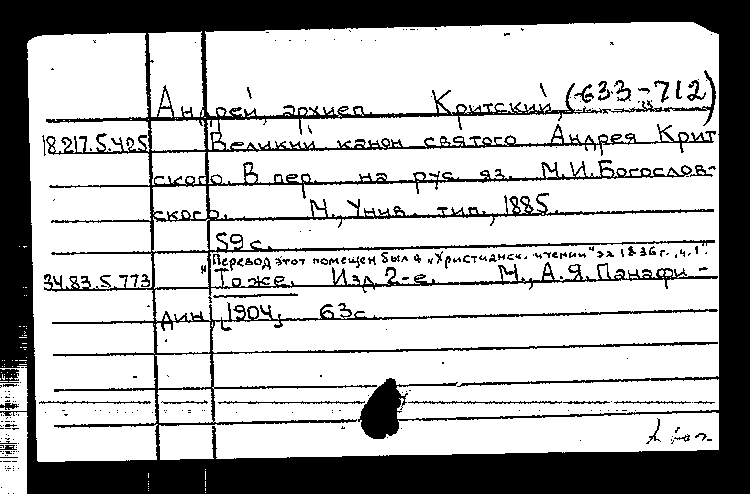 Андрей, архиеп. Критский, (633-712)
18.217.5.425 Великий канон святого Андрея Крит
ского. В пер. на рус. яз. М.И.Богослов-
ского. М., Унив. тип., 1885.
59 с.
"Перевод этот помещен был в "Христианск. чтении" за 1836 г., ч.1".
34.83.5.773 То же. Изд. 2-е. М., А.Я.Панафи-
дин, [1904]. 63 с.